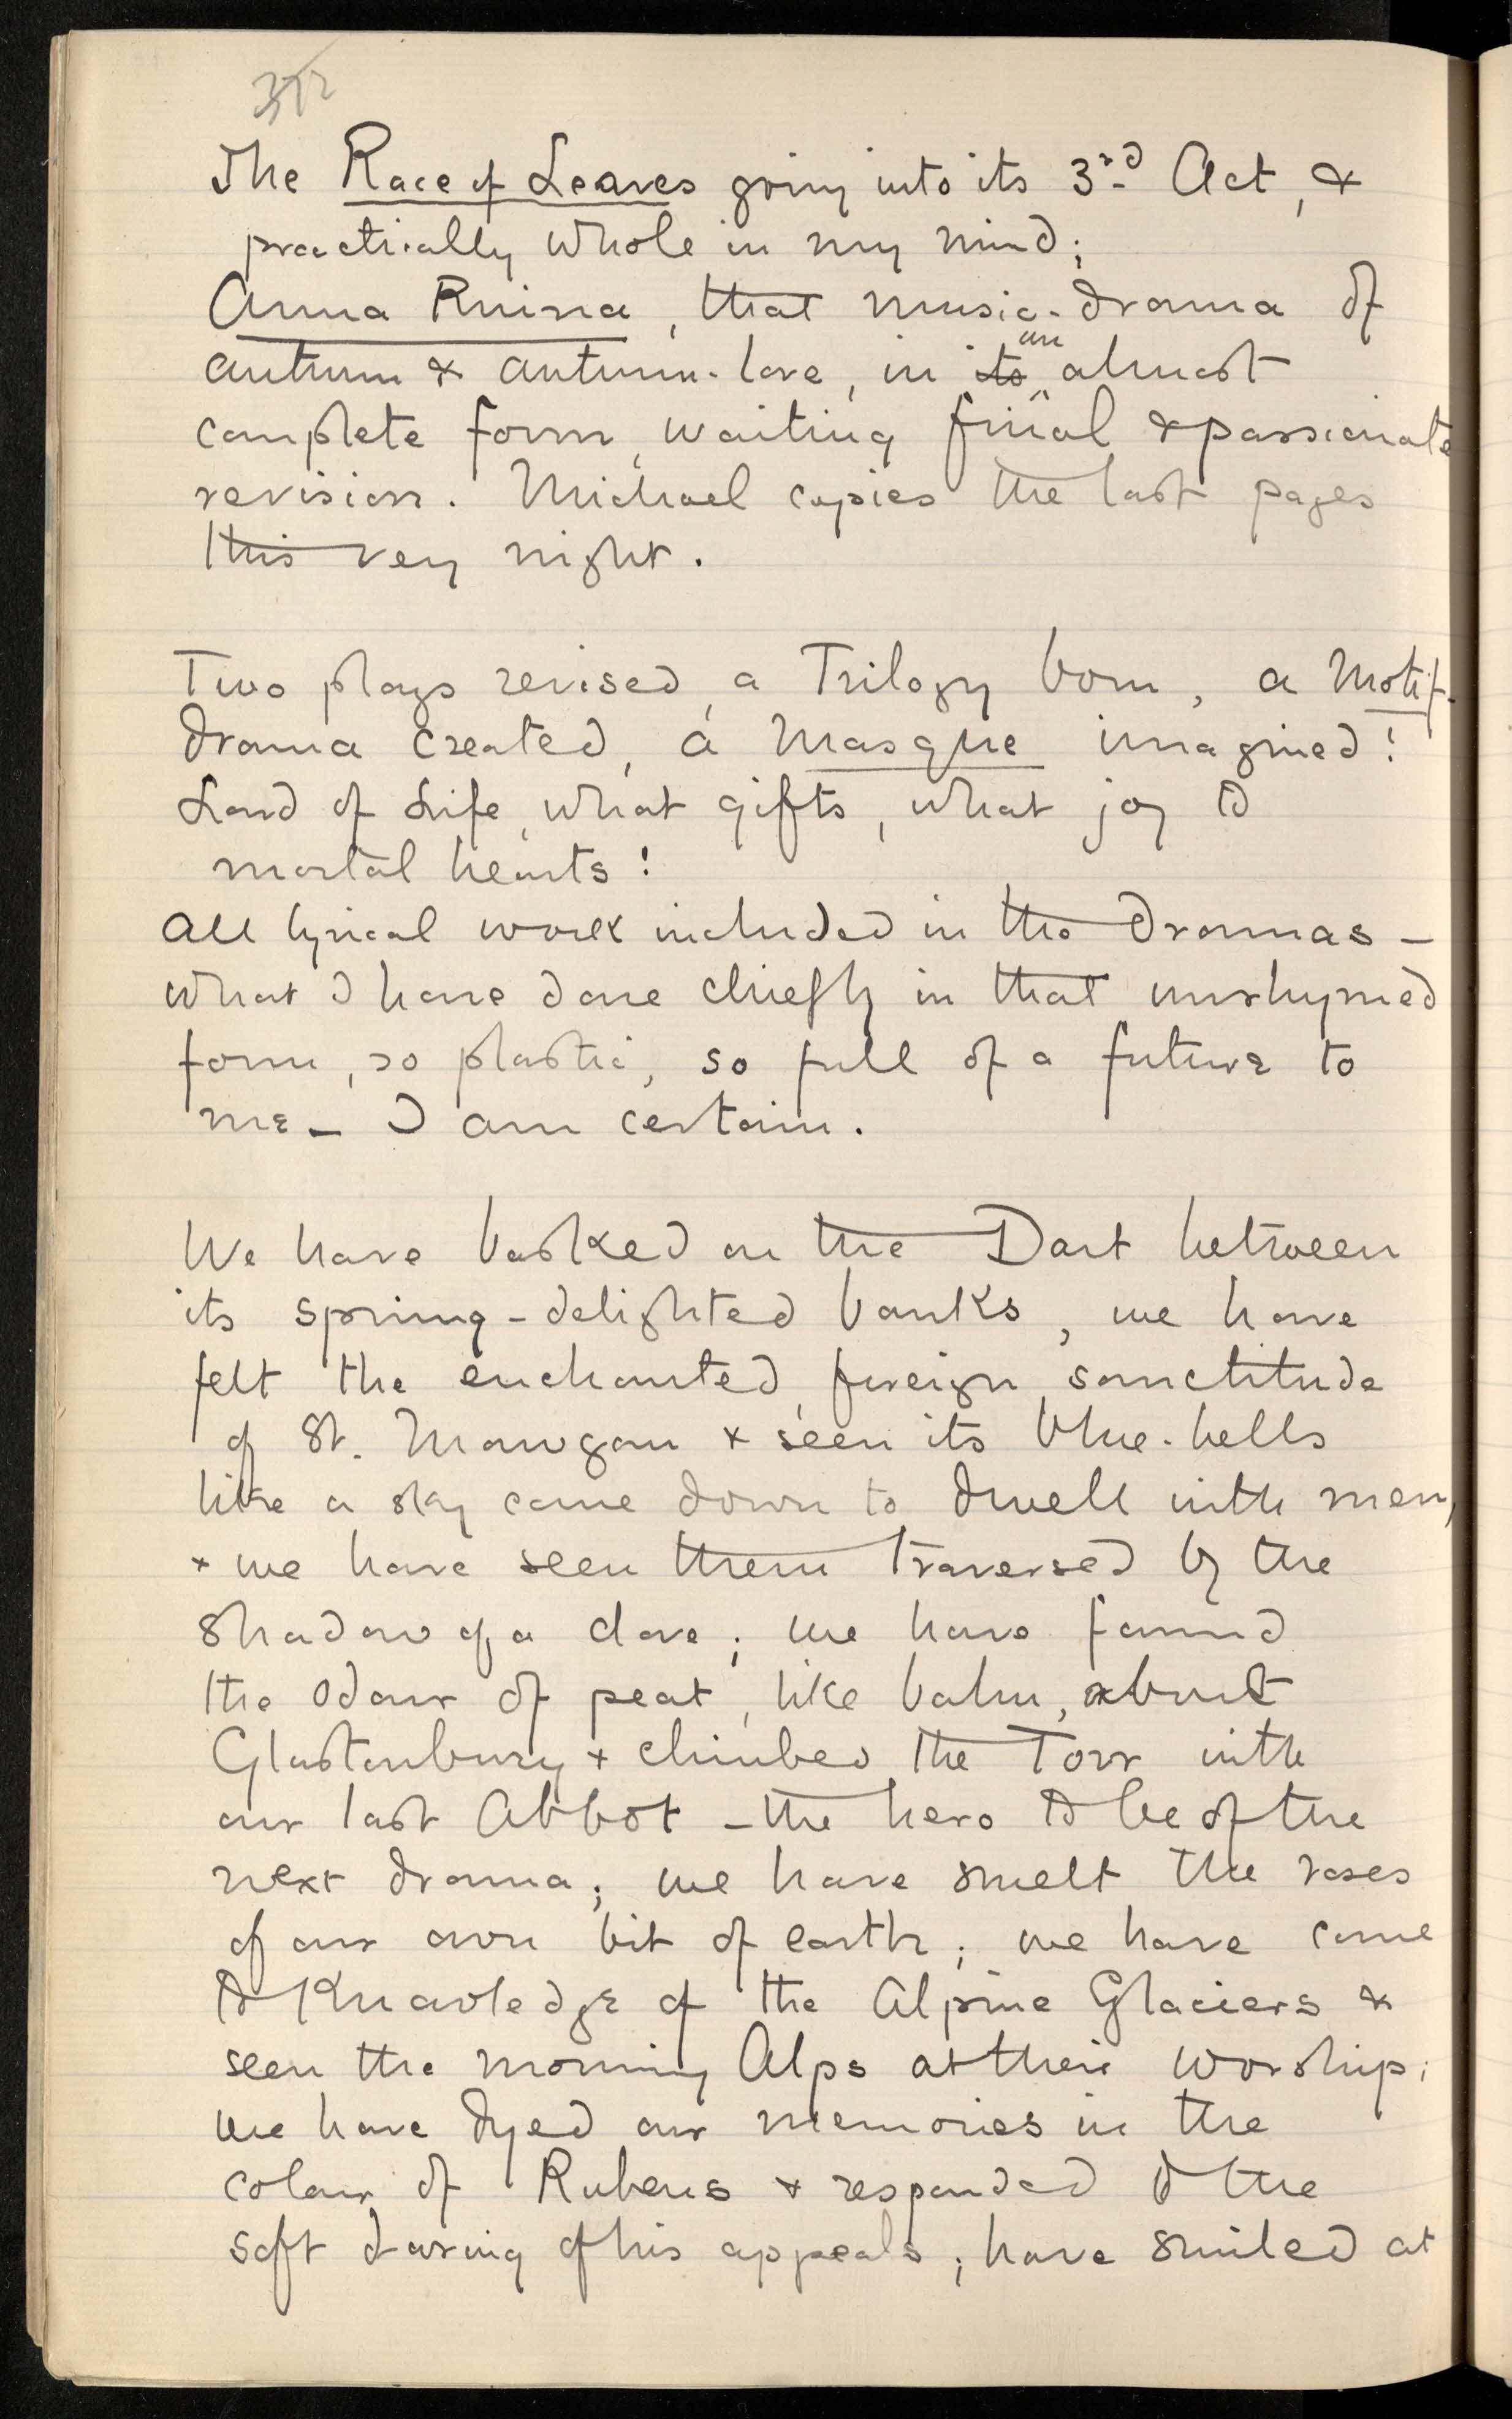 372
The Race of Leaves going into its 3rd Act, &
practically whole in my mind;
Anna Ruina, that music-drama of
autumn & autumn-love, in its an almost
complete form, waiting final & passionate
revision. Michael copies the last pages
this very night.
Two plays revised, a Trilogy born, a Motif-
drama created, a Masque imagined!
Lord of Life, what gifts, what joy to
mortal hearts!
All lyrical work included in the dramas –
what I have done chiefly in that unrhymed
form, so plastic, so full of a future to
me – I am certain.
We have basked on the Dart between
its spring-delighted banks, we have
felt the enchanted, foreign, sanctitude
of St. Mawgan & seen its blue-bells
like a sky come down to dwell with men,
& we have seen them traversed by the
shadow of a dove; we have found
the odour of peat, like balm, about
Glastonbury & climbed the Torr with
our last Abbot – the hero to be of the
next drama; we have smelt the roses
of our own bit of earth; we have come
to knowledge of the Alpine Glaciers &
seen the morning Alps at their worship;
we have dyed our memories in the
colour of Rubens & responded to the
soft daring of his appeals; have smiled at